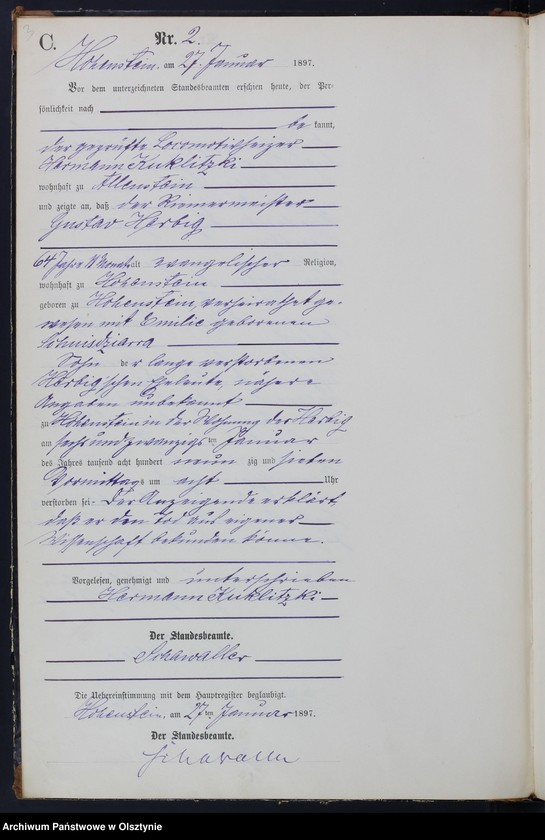 3
C. Nr. 2.
Hohenstein, am 27. Januar 1897.
Vor dem unterzeichneten Standesbeamten erschien heute, der Per-
sönlichkeit nach
be kannt,
der geprüfte Locomotivheizer
Hermann Kuklitzki
wohnhaft zu Allenstein
und zeigte an, daß der Riemermeister
Gustav Herbig
64 Jahre Monate alt evangelischer Religion,
wohnhaft zu Hohenstein
geboren zu Hohenstein, verheirathet ge-
wesen mit Emilie geborenen
Sohn der lange verstorbenen
Herbig'schen Eheleute, nähere
Angaben unbekannt
zu Hohenstein in der Wohnung des Herbig
am sechsundzwanzigsten Januar
des Jahres tausend acht hundert neun zig und sieben
Vormittags um acht Uhr
verstorben sei. Der Anzeigende erklärt,
daß er den Tod aus eigener
Wissenschaft bekunden könne.
Vorgelesen, genehmigt und unterschrieben
Hermann Kuklitzki
Der Standesbeamte.
Schawaller
Die Uebereinstimmung mit dem Hauptregister beglaubigt.
Hohenstein, am 27ten Januar 1897.
Der Standesbeamte.
Schawaller
Archiwum Państwowe w Olsztynie